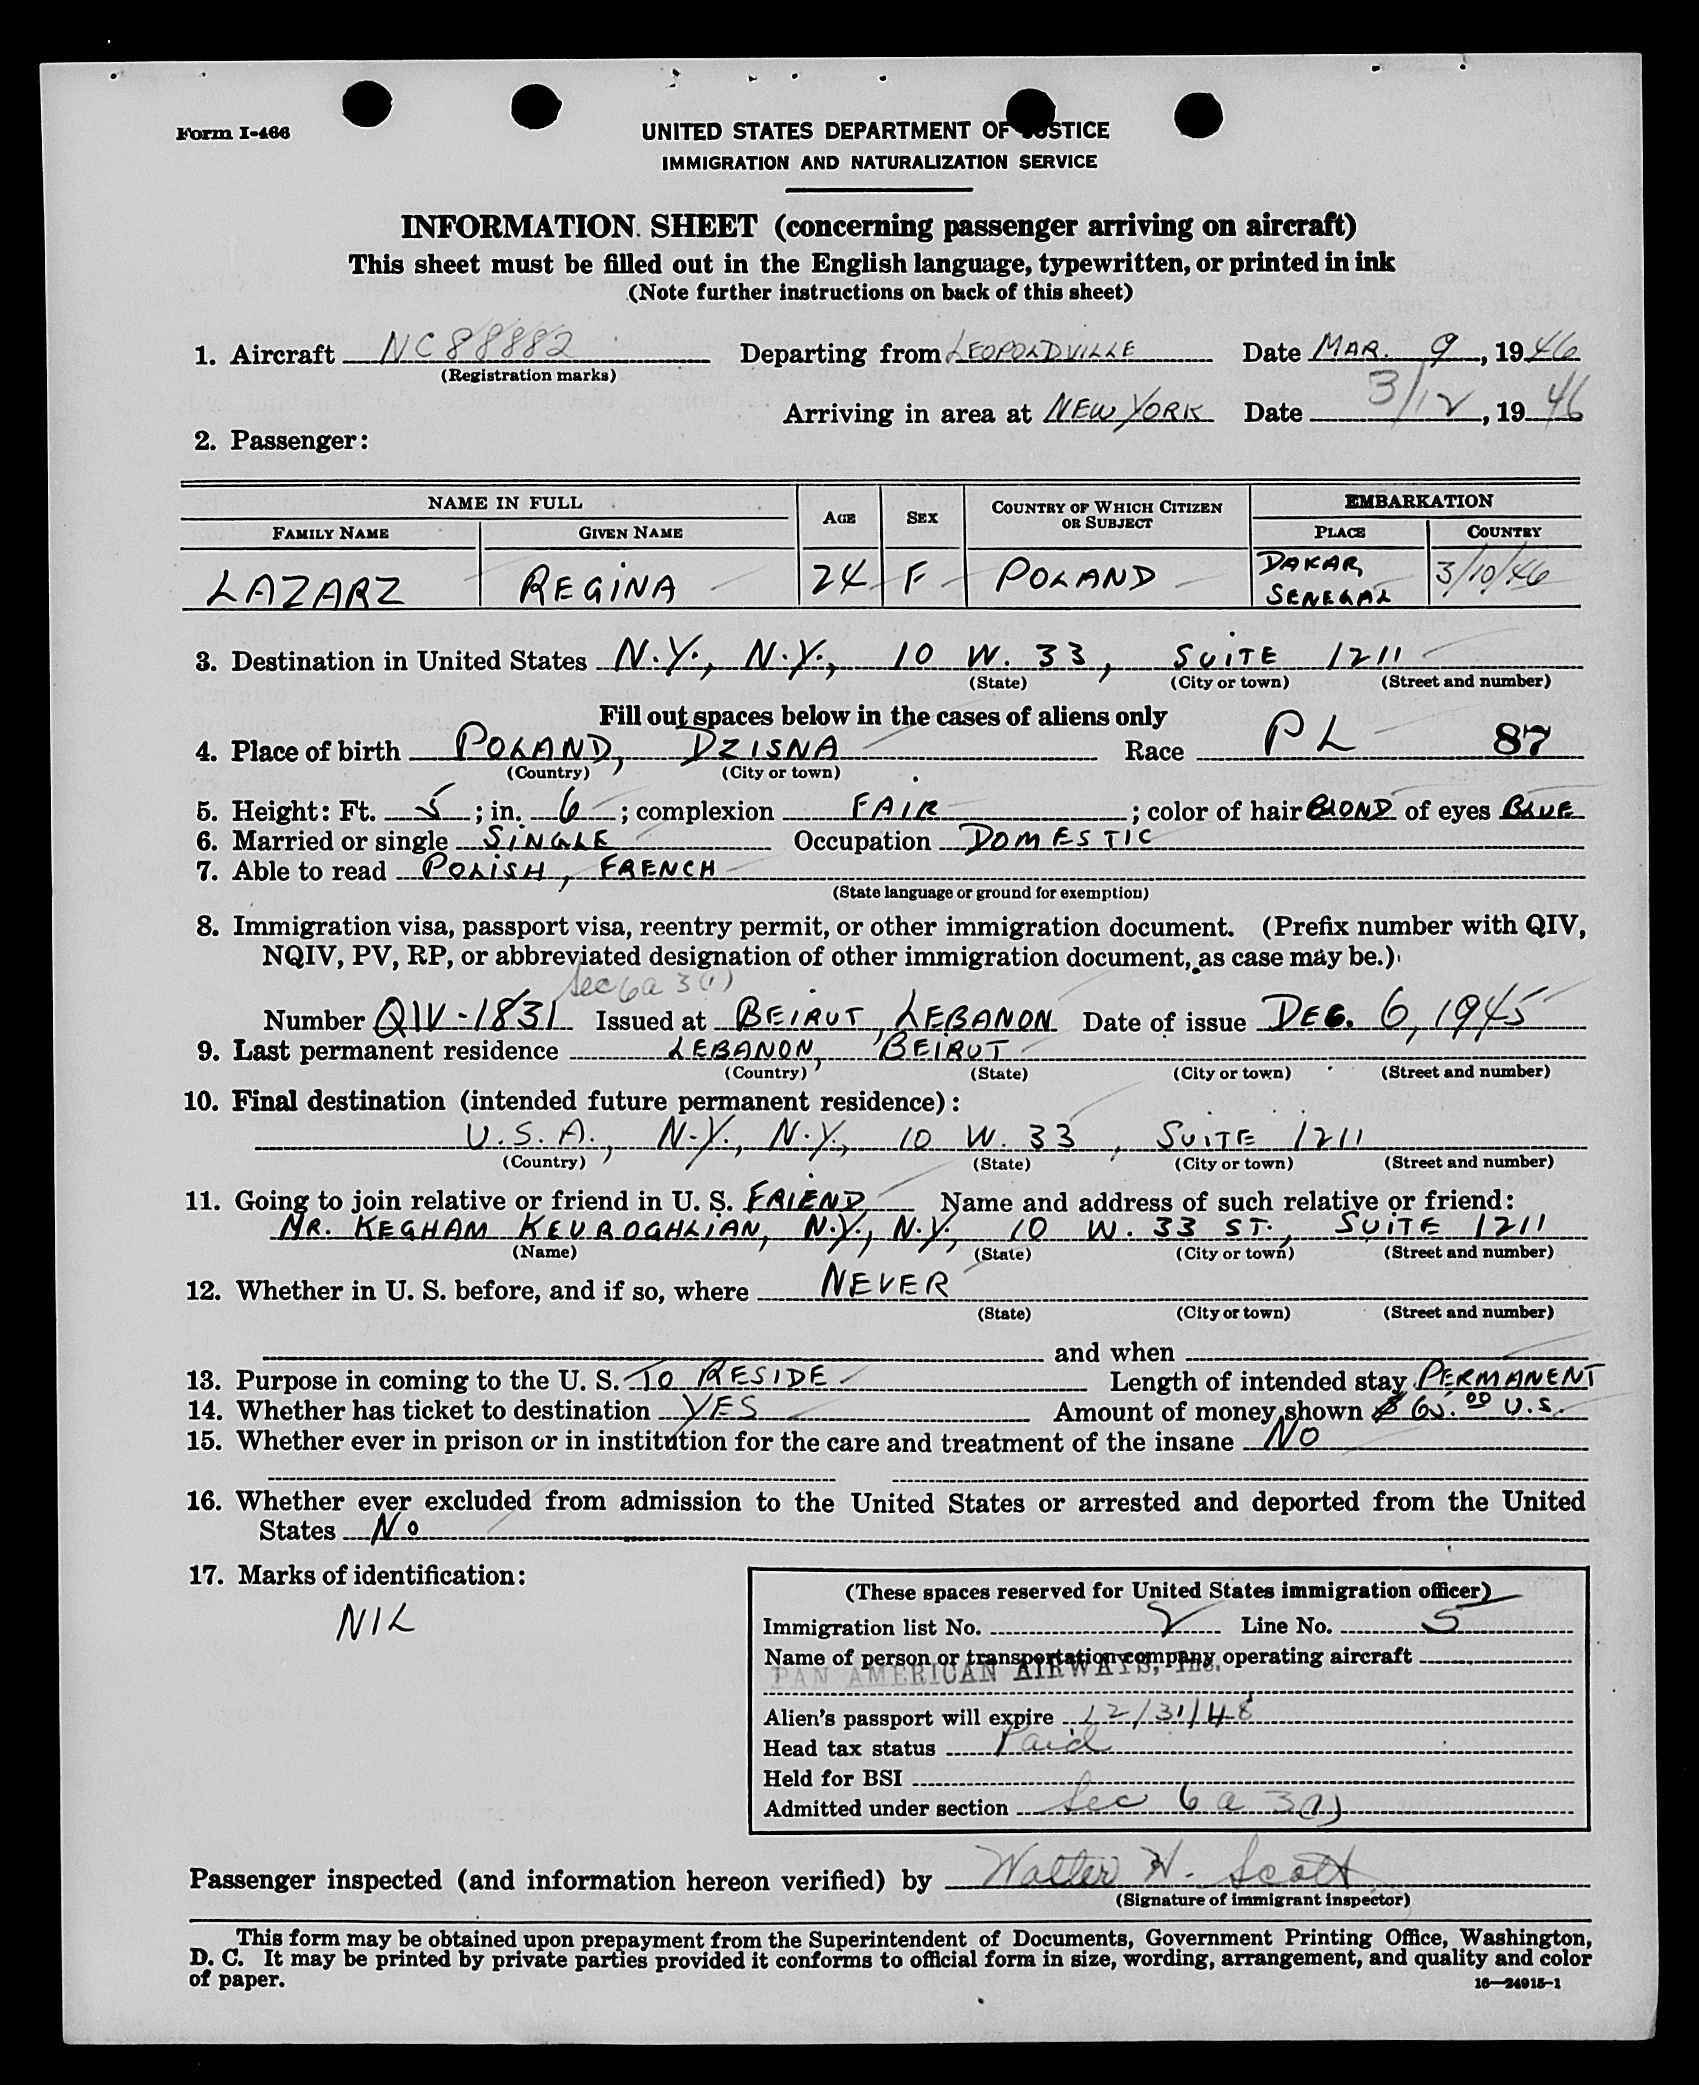 Form I-466
UNITED STATES DEPARTMENT OF JUSTICE
IMMIGRATION AND NATURALIZATION SERVICE
INFORMATION SHEET (concerning passenger arriving on aircraft)
This sheet must be filled out in the English language, typewritten, or printed in ink
(Note further instructions on back of this sheet)
1. Aircraft NC88882 Departing from LEOPOLDVILLE Date MAR. 9, 1946
(Registration marks)
Arriving in area at NEW YORK Date 3/12, 1946
2. Passenger:
NAME IN FULL AGE SEX COUNTRY OF WHICH CITIZEN OR SUBJECT EMBARKATION
FAMILY NAME GIVEN NAME PLACE COUNTRY
LAZARZ REGINA 24 F POLAND DAKAR, SENEGAL 3/10/46
3. Destination in United States N.Y., N.Y., 10 W. 33, SUITE 1211
(State) (City or town) (Street and number)
Fill out spaces below in the cases of aliens only
4. Place of birth POLAND, DZISNA Race PL 87
(Country) (City or town)
5. Height: Ft. 5; in. 6; complexion FAIR; color of hair BLOND of eyes BLUE
6. Married or single SINGLE Occupation DOMESTIC
7. Able to read POLISH, FRENCH
(State language or ground for exemption)
8. Immigration visa, passport visa, reentry permit, or other immigration document. (Prefix number with QIV,
NQIV, PV, RP, or abbreviated designation of other immigration document, as case may be.)
Sec 6a 3(1)
Number QIV-1831 Issued at BEIRUT, LEBANON Date of issue DEC. 6, 1945
9. Last permanent residence LEBANON, BEIRUT
(Country) (State) (City or town) (Street and number)
10. Final destination (intended future permanent residence):
U.S.A., N.Y., N.Y., 10 W. 33, SUITE 1211
(Country) (State) (City or town) (Street and number)
11. Going to join relative or friend in U. S. FRIEND Name and address of such relative or friend:
MR. KEGHAM KEUROGHLIAN, N.Y., N.Y., 10 W. 33 ST., SUITE 1211
(Name) (State) (City or town) (Street and number)
12. Whether in U. S. before, and if so, where NEVER
(State) (City or town) (Street and number)
and when
13. Purpose in coming to the U. S. TO RESIDE Length of intended stay PERMANENT
14. Whether has ticket to destination YES Amount of money shown $ 65.00 U.S.
15. Whether ever in prison or in institution for the care and treatment of the insane NO
16. Whether ever excluded from admission to the United States or arrested and deported from the United
States No
17. Marks of identification:
NIL
(These spaces reserved for United States immigration officer)
Immigration list No. 2 Line No. 5
Name of person or transportation company operating aircraft
PAN AMERICAN AIRWAYS, Inc.
Alien's passport will expire 12/31/48
Head tax status Paid
Held for BSI
Admitted under section Sec 6a 3(1)
Passenger inspected (and information hereon verified) by Walter W. Scott
(Signature of immigrant inspector)
This form may be obtained upon prepayment from the Superintendent of Documents, Government Printing Office, Washington,
D. C. It may be printed by private parties provided it conforms to official form in size, wording, arrangement, and quality and color
of paper.
16—24915-1